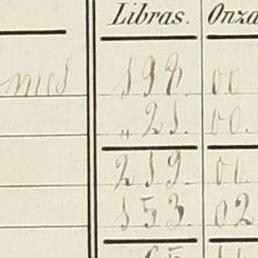 Libras. Onza
198. 00
„ 21. 00.
219. 00
153. 02